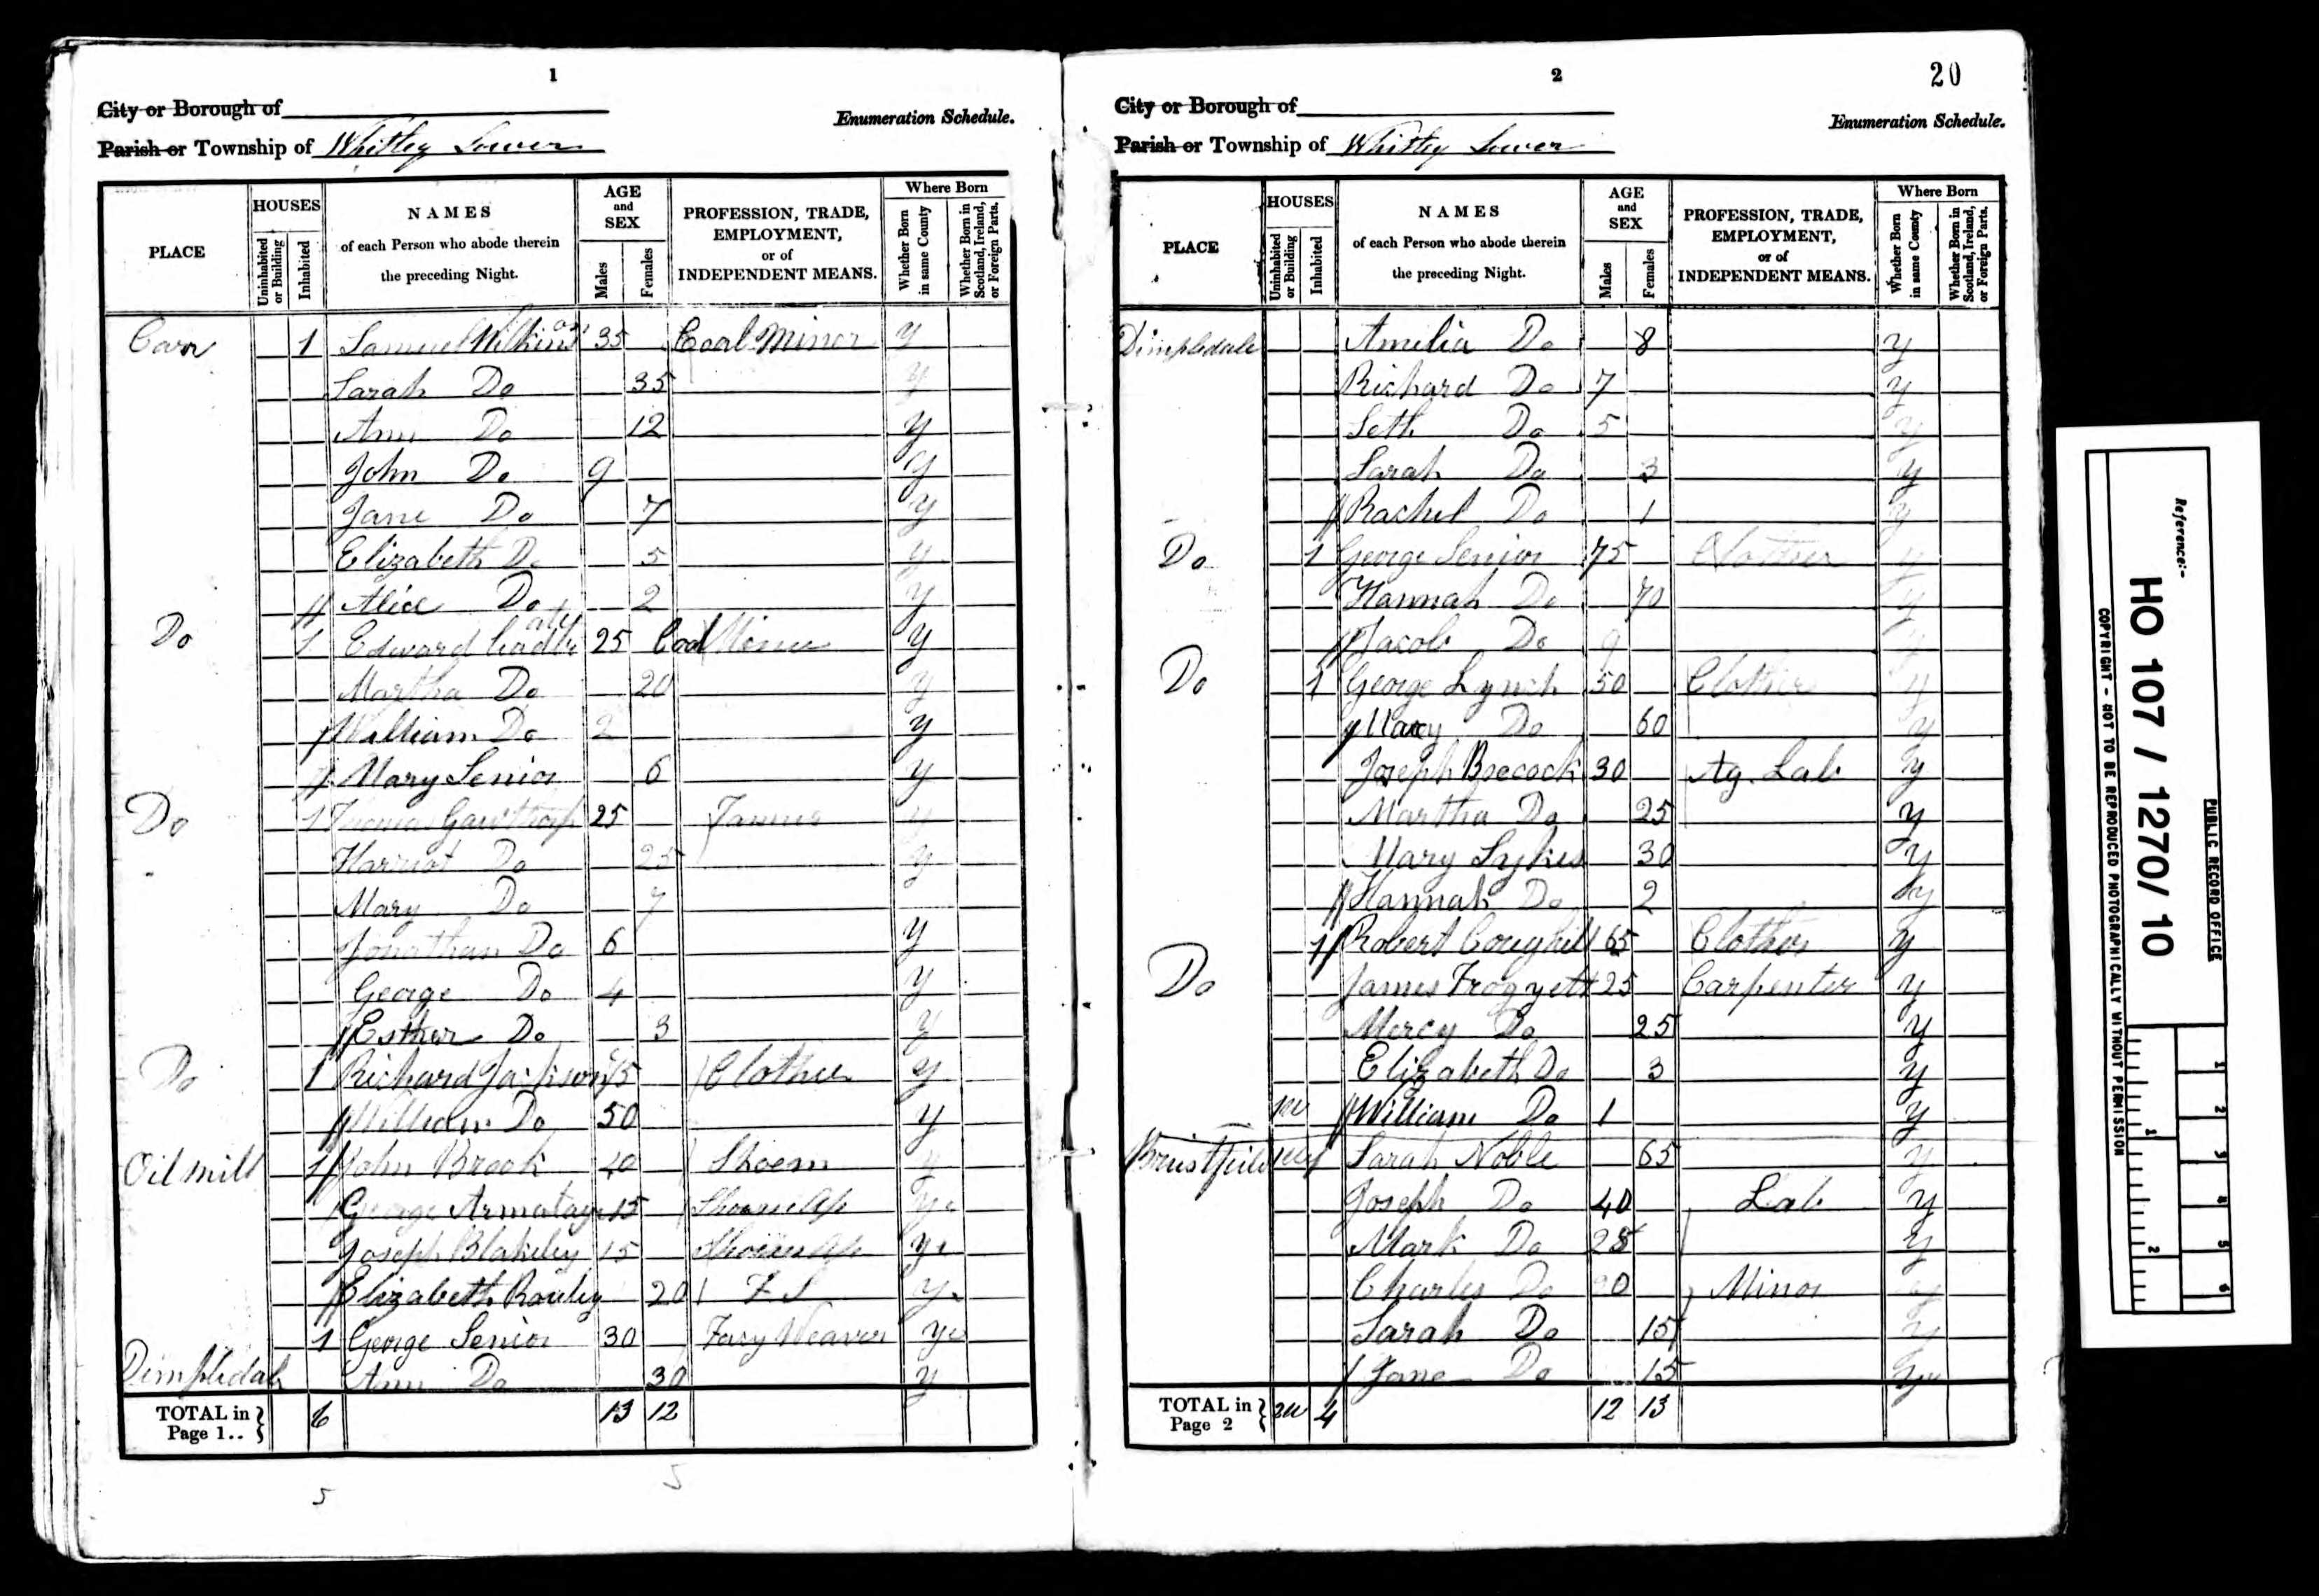 1
City or Borough of
Enumeration Schedule.
Parish or Township of Whitley Lower
PLACE
HOUSES
Uninhabited or Building
Inhabited
NAMES of each Person who abode therein the preceding Night.
AGE and SEX
Males
Females
PROFESSION, TRADE, EMPLOYMENT, or of INDEPENDENT MEANS.
Where Born
Whether Born in same County
Whether Born in Scotland, Ireland, or Foreign Parts.
Carr 1 Samuel Wilkinson 35 Coal Minor y
Sarah Do 35 y
Ann Do 12 y
John Do 9 y
Jane Do 7 y
Elizabeth Do 5 y
Alice Do 2 y
Do 1 Edward 25 Coal Miner y
Martha Do 20 y
William Do 2 y
Mary Senior 6 y
Do 1 Thomas Gawthorp 25 Farmer y
Harriot Do 25 y
Mary Do 7
Jonathan Do 6 y
George Do 4 y
Esther Do 3 y
Do 1 Richard Jackson Clother y
William Do 50 y
Oil mill 1 John Brook 40 Shoem y
George Armatage 15 Shoem Ap
Joseph Blakeley 15 Shoem Ap
Elizabeth Rowley 20 F S y
1 George Senior 30 Fancy Weaver
Dimpledale Ann Do 30 y
TOTAL in Page 1.. 6 13 12
5 5
2
20
City or Borough of
Enumeration Schedule.
Parish or Township of Whitley Lower
PLACE
HOUSES
Uninhabited or Building
Inhabited
NAMES of each Person who abode therein the preceding Night.
AGE and SEX
Males
Females
PROFESSION, TRADE, EMPLOYMENT, or of INDEPENDENT MEANS.
Where Born
Whether Born in same County
Whether Born in Scotland, Ireland, or Foreign Parts.
Dimpledale Amelia Do 8 y
Richard Do 7 y
Seth Do 5 y
Sarah Do 3 y
Rachel Do 1 y
Do 1 George Senior 75 Clother y
Hannah Do 70 y
Jacob Do 9 y
Do 1 George Lynch 50 Clother y
Mary Do 60 y
Joseph Bocock 30 Ag. Lab y
Martha Do 25 y
Mary Sykes 30 y
Hannah Do 2 y
1 Robert Coughill 65 Clother y
Do James Froggett 25 Carpenter y
Mercy Do 25 y
Elizabeth Do 3 y
William Do 1 y
Sarah Noble 65 y
Joseph Do 40 Lab y
Mark Do y
Charles Do 20 Minor
Sarah Do 15 y
Jane Do 15
TOTAL in Page 2 4 12 13
Reference:-
HO 107 / 1270/ 10
PUBLIC RECORD OFFICE
COPYRIGHT - NOT TO BE REPRODUCED PHOTOGRAPHICALLY WITHOUT PERMISSION
1 2 3 4 5 6
1 2